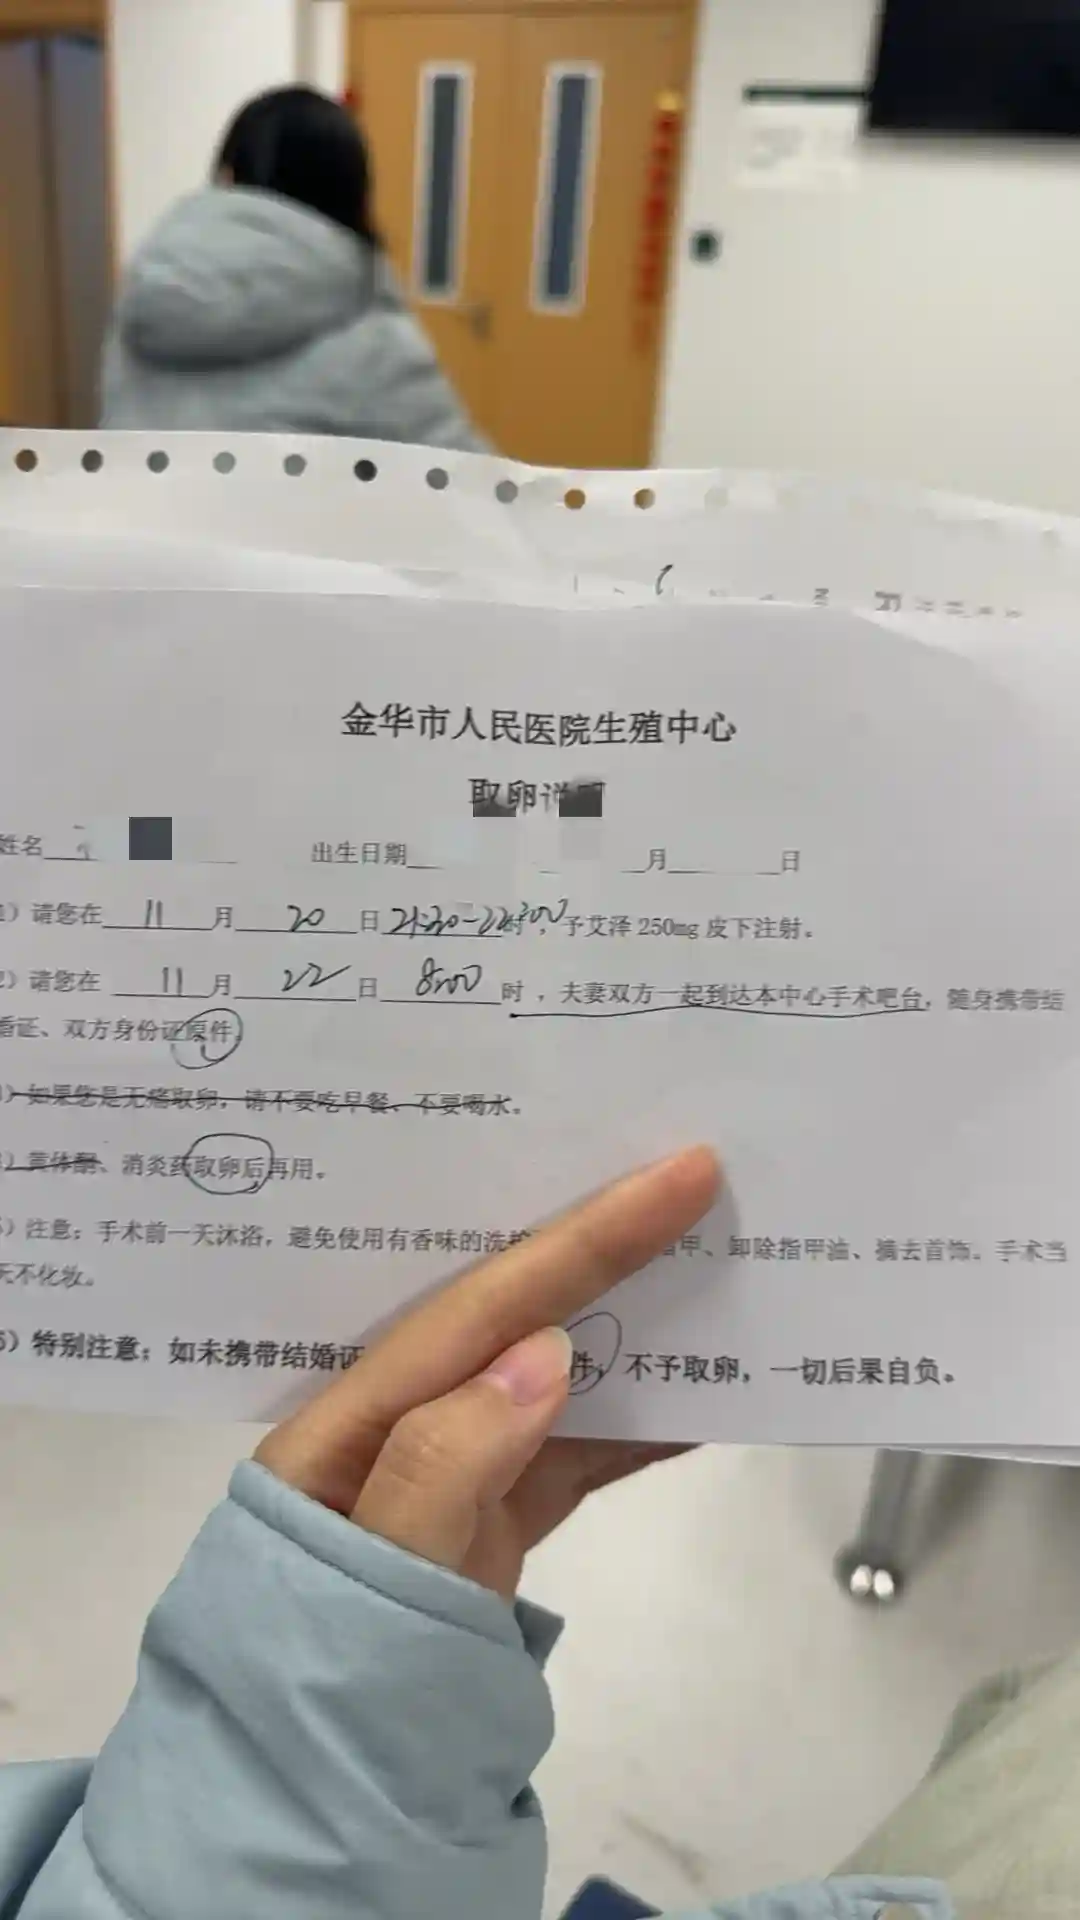 金华市人民医院生殖中心
取卵说明
姓名 出生日期 月 日
1）请您在 11 月 20 日 21:30-22:00时，予艾泽250mg皮下注射。
2）请您在 11 月 22 日 8:00 时，夫妻双方一起到达本中心手术吧台，随身携带结
婚证、双方身份证原件。
）如果您是无痛取卵，请不要吃早餐、不要喝水。
）黄体酮、消炎药取卵后再用。
5）注意：手术前一天沐浴，避免使用有香味的洗 指甲、卸除指甲油、摘去首饰。手术当
天不化妆。
6）特别注意：如未携带结婚证 件，不予取卵，一切后果自负。